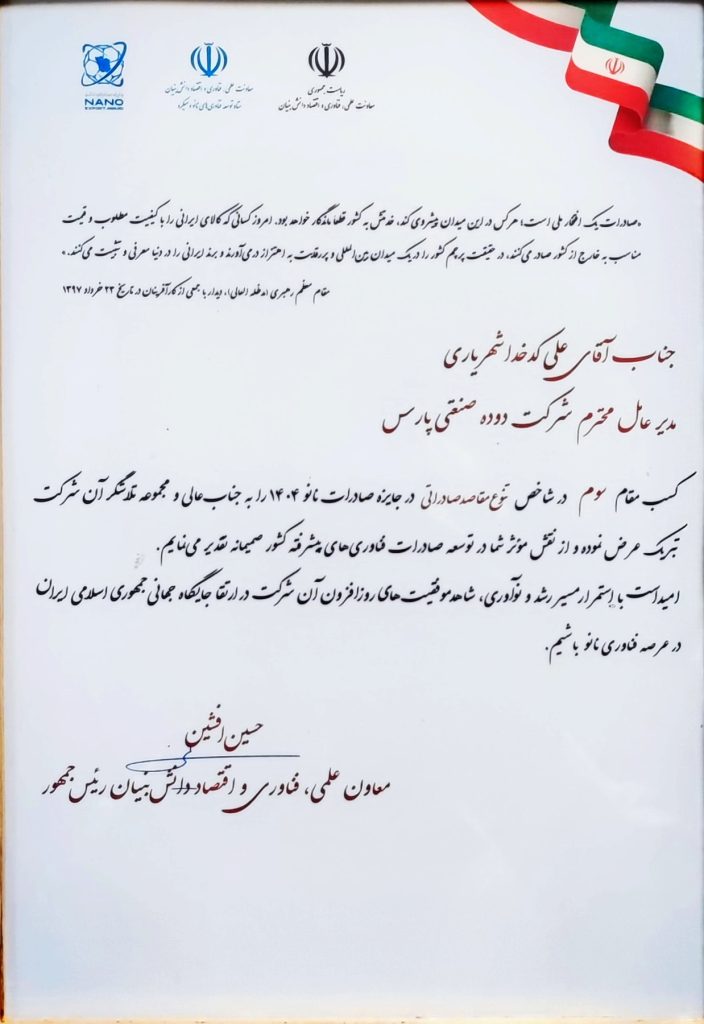 ریاست جمهوری
معاونت علمی، فناوری و اقتصاد دانش بنیان
معاونت علمی، فناوری و اقتصاد دانش بنیان
ستاد توسعه فناوری‌های نانو و میکرو
NANO
EXPORT AWARD
«صادرات یک افتخار ملی است؛ هرکس در این میدان پیشروی کند، خدمتش به کشور قطعا ماندگار خواهد بود. امروز کسانی که کالای ایرانی را با کیفیت مطلوب و قیمت
مناسب به خارج از کشور صادر می‌کنند، در حقیقت پرچم کشور را در یک میدان بین‌المللی و پررقابت به اهتزاز درمی‌آورند و برند ایرانی را در دنیا معرفی و تثبیت می‌کنند.»
مقام معظم رهبری (مدظله العالی)، دیدار با جمعی از کارآفرینان در تاریخ ۲۳ خرداد ۱۳۹۷
جناب آقای علی کدخدا شهریاری
مدیر عامل محترم شرکت دوده صنعتی پارس
کسب مقام سوم در شاخص تنوع مقاصد صادراتی در جایزه صادرات نانو ۱۴۰۴ را به جناب‌عالی و مجموعه تلاشگر آن شرکت
تبریک عرض نموده و از نقش مؤثر شما در توسعه صادرات فناوری‌های پیشرفته کشور صمیمانه تقدیر می‌نمایم.
امید است با استمرار مسیر رشد و نوآوری، شاهد موفقیت‌های روزافزون آن شرکت در ارتقا جایگاه جهانی جمهوری اسلامی ایران
در عرصه فناوری نانو باشیم.
حسین افشین
معاون علمی، فناوری و اقتصاد دانش بنیان رئیس جمهور